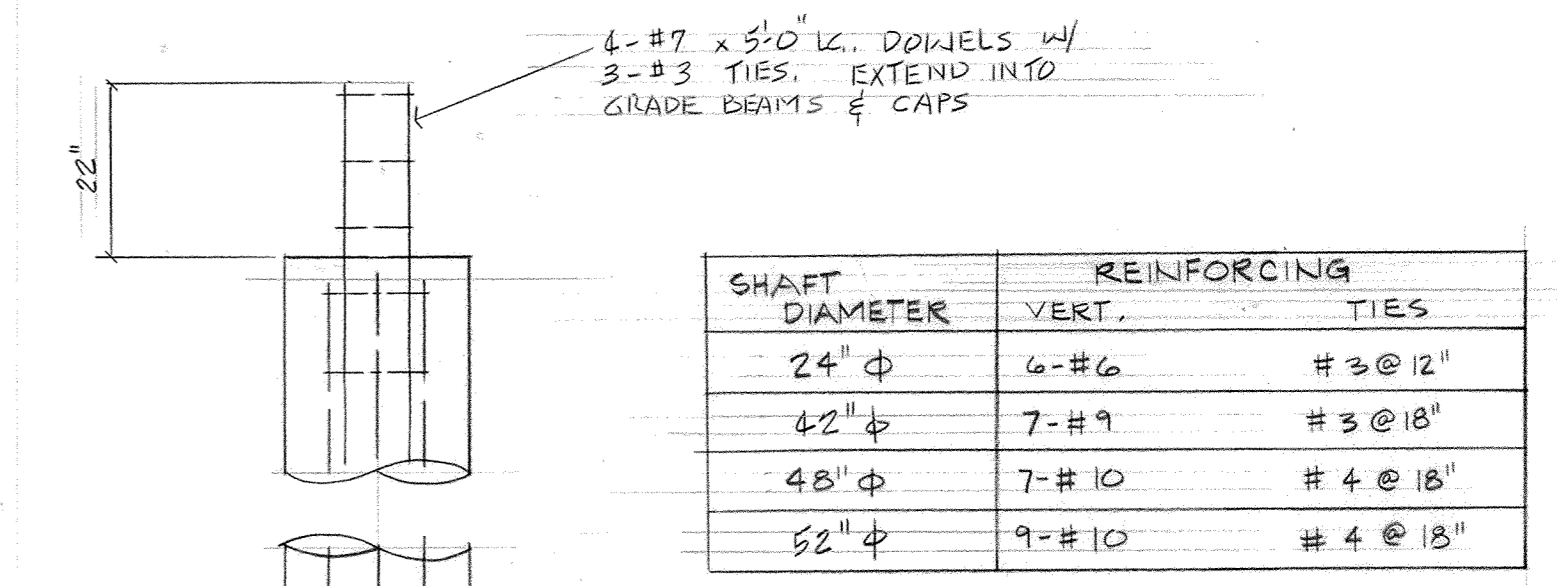 4-#7 x 5'-0" LG. DOWELS W/
3-#3 TIES. EXTEND INTO
GRADE BEAMS & CAPS
22"
SHAFT DIAMETER REINFORCING
VERT. TIES
24" ϕ 6-#6 #3@12"
42" ϕ 7-#9 #3@18"
48" ϕ 7-#10 #4@18"
52" ϕ 9-#10 #4@18"